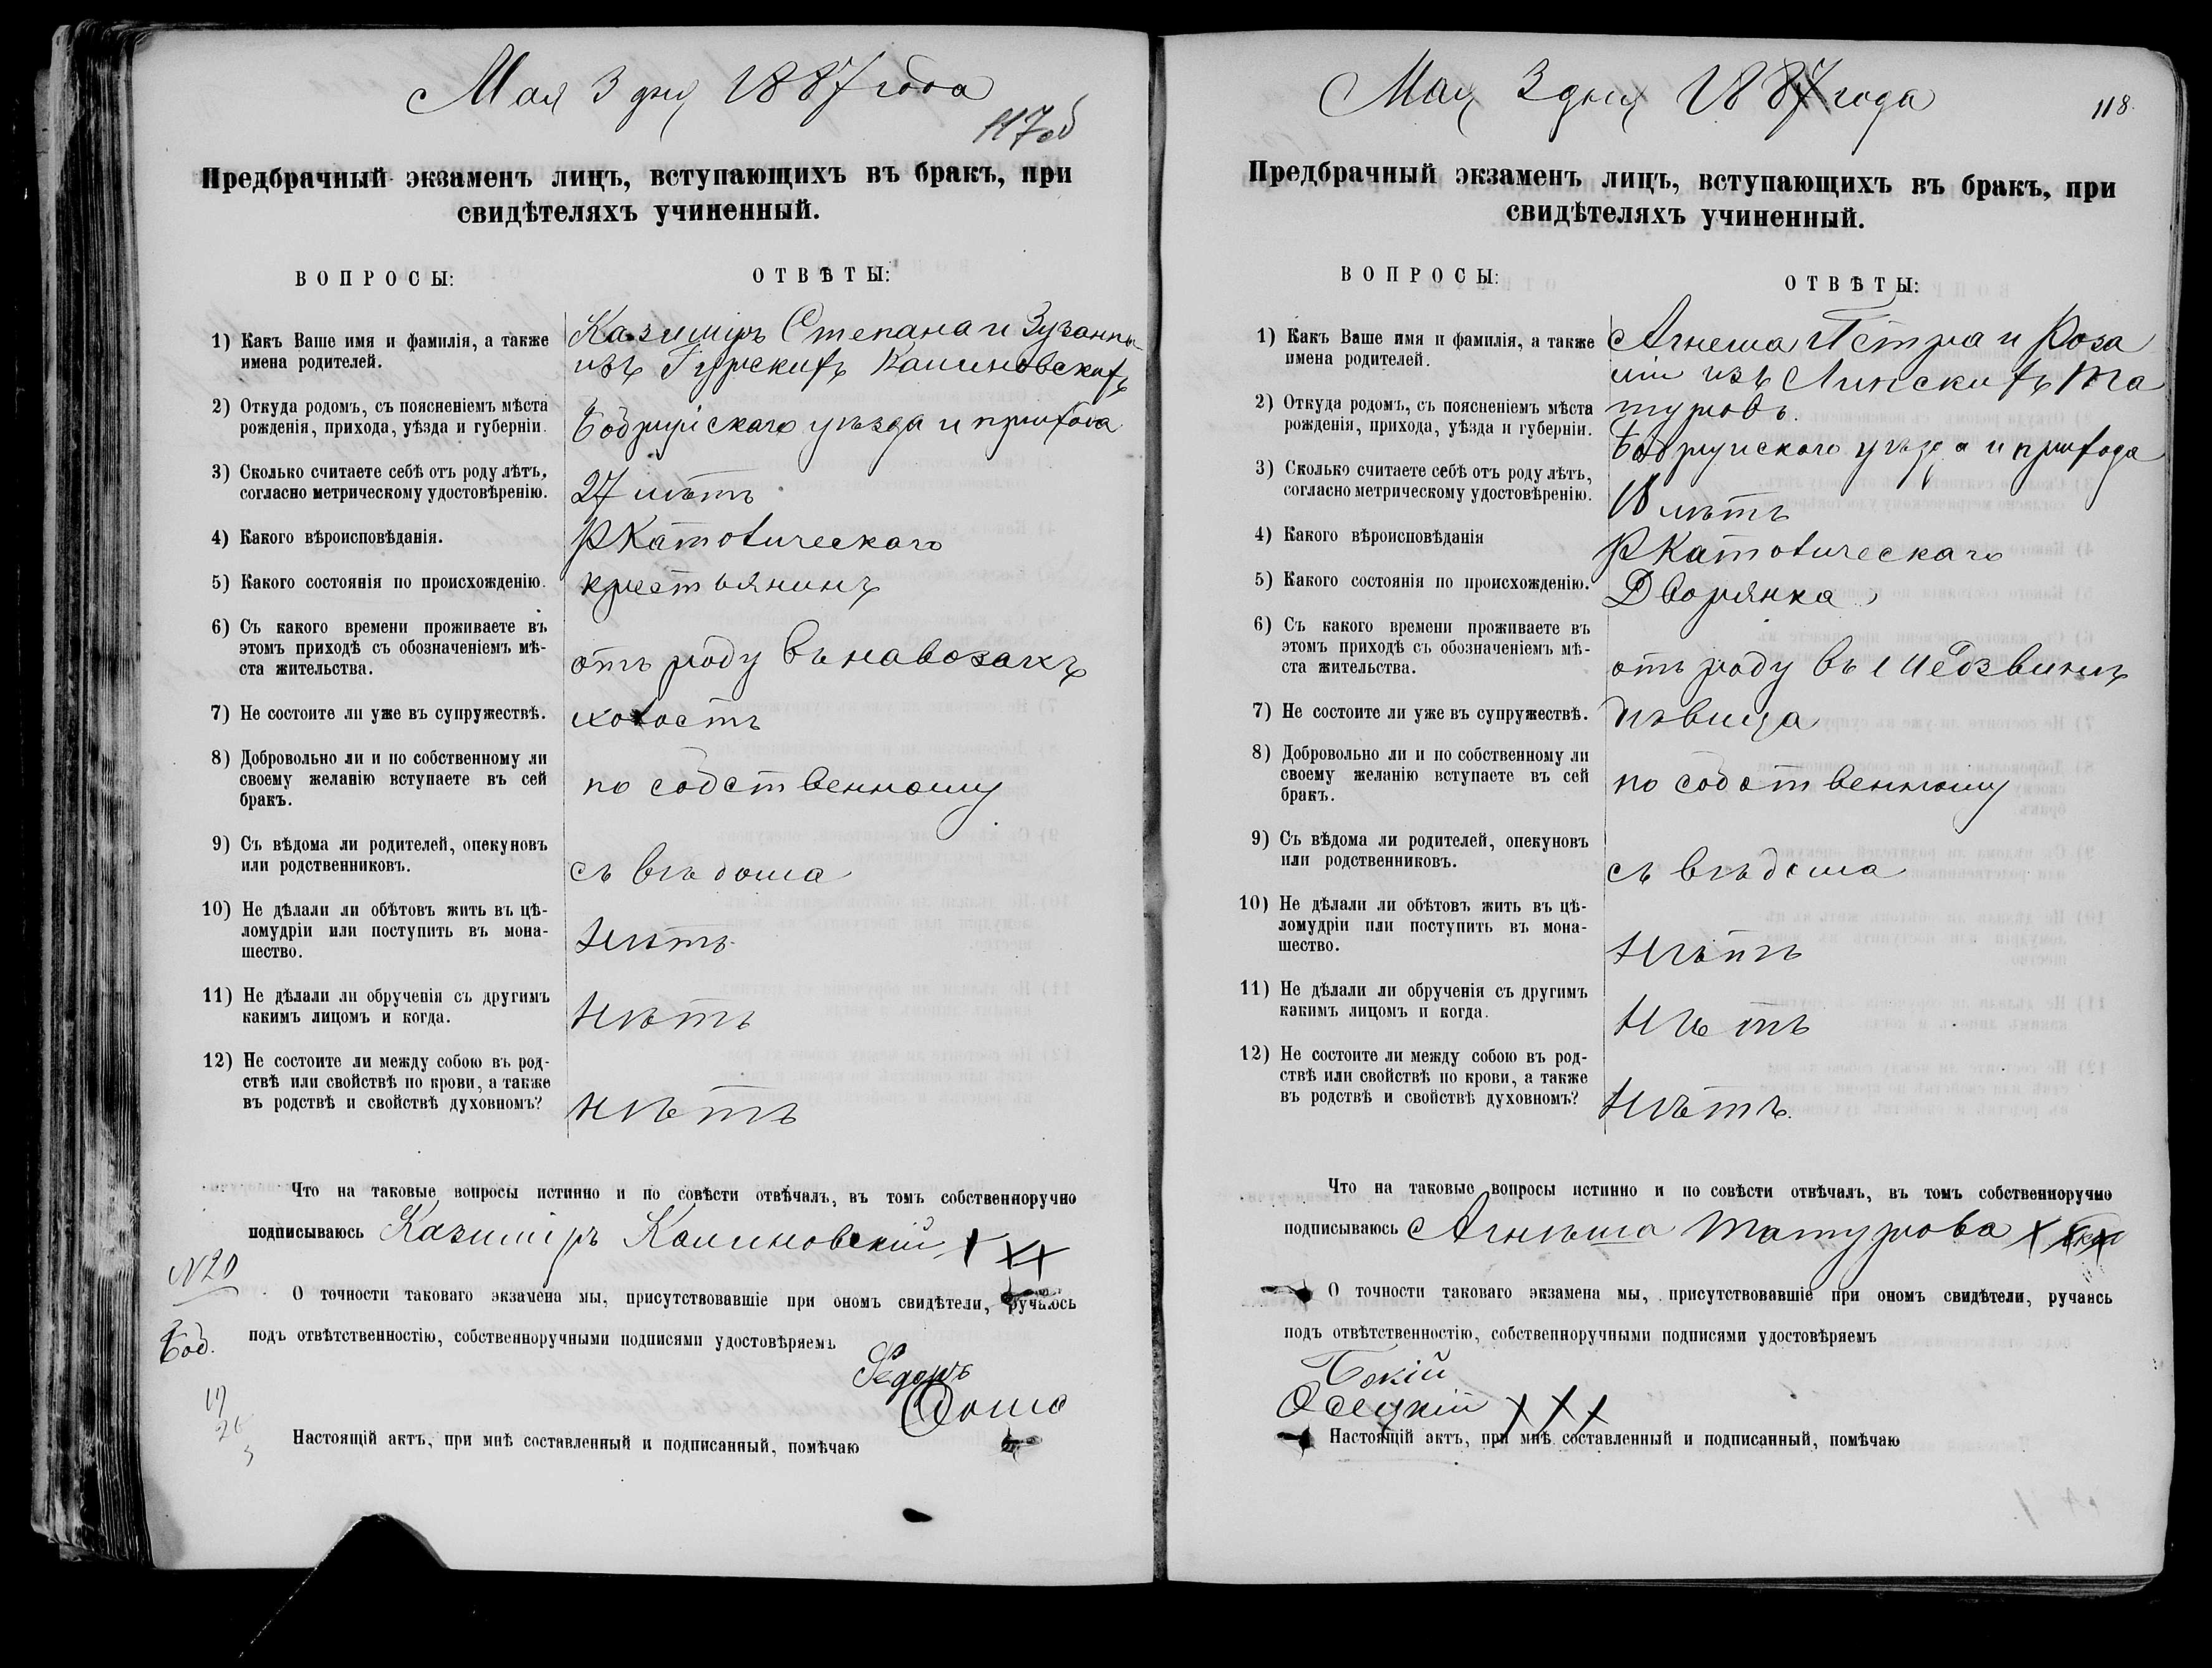 Мая 3 дня 1887 года
117об
Предбрачный экзаменъ лицъ, вступающихъ въ бракъ, при
свидѣтеляхъ учиненный.
ВОПРОСЫ: ОТВѢТЫ:
1) Какъ Ваше имя и фамилія, а также
имена родителей.
Казиміръ Степана и Зузанны
изъ Гурскихъ Калиновскихъ
2) Откуда родомъ, съ поясненіемъ мѣста
рожденія, прихода, уѣзда и губерніи.
Бобруйскаго уѣзда и прихода
3) Сколько считаете себѣ отъ роду лѣтъ,
согласно метрическому удостовѣренію.
27 лѣтъ
4) Какого вѣроисповѣданія.
РКатолическаго
5) Какого состоянія по происхожденію.
крестьянинъ
6) Съ какого времени проживаете въ
этомъ приходѣ съ обозначеніемъ мѣ-
ста жительства.
отъ роду въ
7) Не состоите ли уже въ супружествѣ.
холостъ
8) Добровольно ли и по собственному ли
своему желанію вступаете въ сей
бракъ.
по собственному
9) Съ вѣдома ли родителей, опекуновъ
или родственниковъ.
съ вѣдома
10) Не дѣлали ли обѣтовъ жить въ цѣ-
ломудріи или поступить въ мона-
шество.
нѣтъ
11) Не дѣлали ли обрученія съ другимъ
какимъ лицомъ и когда.
нѣтъ
12) Не состоите ли между собою въ род-
ствѣ или свойствѣ по крови, а также
въ родствѣ и свойствѣ духовномъ?
нѣтъ
Что на таковые вопросы истинно и по совѣсти отвѣчалъ, въ томъ собственноручно
подписываюсь Казиміръ Калиновскій XXX
N20
О точности таковаго экзамена мы, присутствовавшіе при ономъ свидѣтели, ручаюсь
подъ отвѣтственностію, собственноручными подписями удостовѣряемъ
Боб.
Настоящій актъ, при мнѣ составленный и подписанный, помѣчаю
Мая 3 дня 1887 года
118
Предбрачный экзаменъ лицъ, вступающихъ въ бракъ, при
свидѣтеляхъ учиненный.
ВОПРОСЫ: ОТВѢТЫ:
1) Какъ Ваше имя и фамилія, а также
имена родителей.
Агнеша Петра и Роза
ліи изъ Линскихъ Та
туровъ.
2) Откуда родомъ, съ поясненіемъ мѣста
рожденія, прихода, уѣзда и губерніи.
Бобруйскаго уѣзда и прихода
3) Сколько считаете себѣ отъ роду лѣтъ,
согласно метрическому удостовѣренію.
18 лѣтъ
4) Какого вѣроисповѣданія
РКатолическаго
5) Какого состоянія по происхожденію.
Дворянка
6) Съ какого времени проживаете въ
этомъ приходѣ съ обозначеніемъ мѣ-
ста жительства.
отъ роду въ
7) Не состоите ли уже въ супружествѣ.
дѣвица
8) Добровольно ли и по собственному ли
своему желанію вступаете въ сей
бракъ.
по собственному
9) Съ вѣдома ли родителей, опекуновъ
или родственниковъ.
съ вѣдома
10) Не дѣлали ли обѣтовъ жить въ цѣ-
ломудріи или поступить въ мона-
шество.
нѣтъ
11) Не дѣлали ли обрученія съ другимъ
какимъ лицомъ и когда.
нѣтъ
12) Не состоите ли между собою въ род-
ствѣ или свойствѣ по крови, а также
въ родствѣ и свойствѣ духовномъ?
нѣтъ.
Что на таковые вопросы истинно и по совѣсти отвѣчалъ, въ томъ собственноручно
подписываюсь Агнѣша Татурова
О точности таковаго экзамена мы, присутствовавшіе при ономъ свидѣтели, ручаясь
подъ отвѣтственностію, собственноручными подписями удостовѣряемъ
XXX
Настоящій актъ, при мнѣ составленный и подписанный, помѣчаю